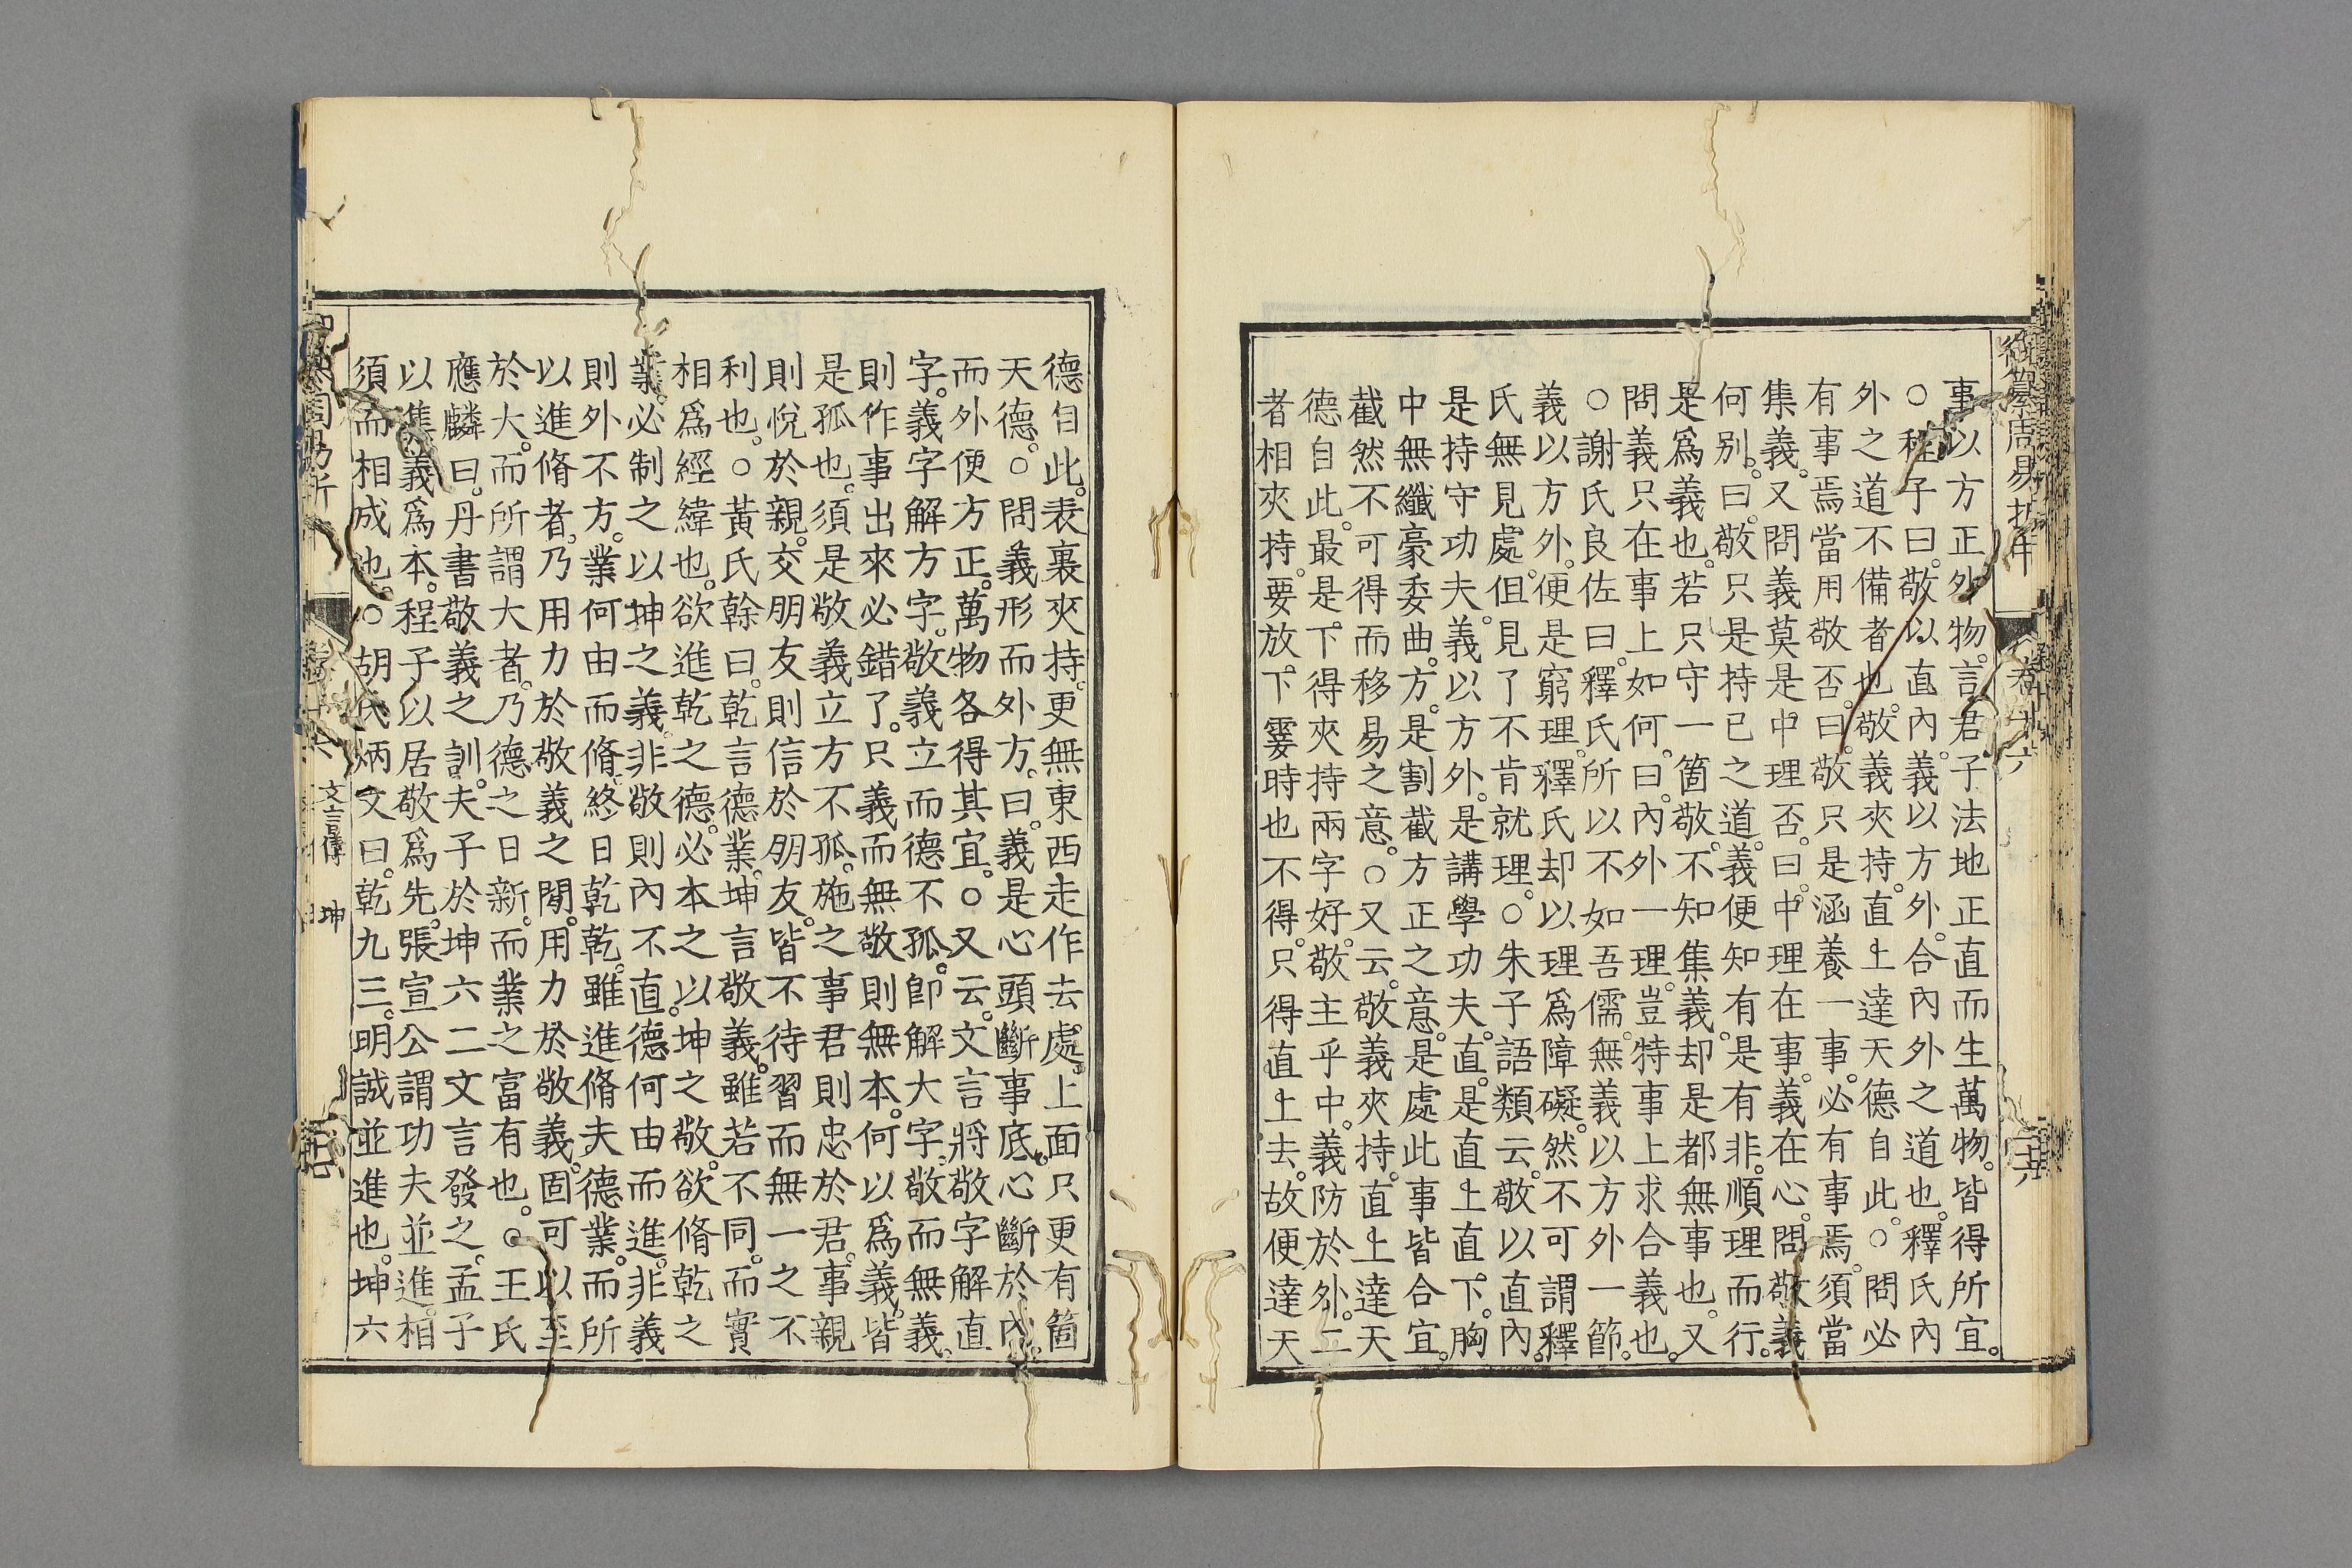 御纂周易折中
卷十六
事以方正外物言君子法地正直而生萬物皆得所宜
○程子曰敬以直內義以方外合內外之道也釋氏內
外之道不備者也敬義夾持直上達天德自此○問必
有事焉當用敬否曰敬只是涵養一事必有事焉須當
集義又問義莫是中理否曰中理在事義在心問敬義
何别曰敬只是持已之道義便知有是有非順理而行
是爲義也若只守一箇敬不知集義却是都無事也又
問義只在事上如何曰內外一理豈特事上求合義也
○謝氏良佐曰釋氏所以不如吾儒無義以方外一節
義以方外便是窮理釋氏却以理爲障礙然不可謂釋
氏無見處但見了不肯就理○朱子語類云敬以直內
是持守功夫義以方外是講學功夫直是直上直下胸
中無纖豪委曲方是割截方正之意是處此事皆合宜
截然不可得而移易之意○又云敬義夾持直上達天
德自此最是下得夾持兩字好敬主乎中義防於外二
者相夾持要放下霎時也不得只得直上去故便達天
德自此表裏夾持更無東西走作去處上面只更有箇
天德○問義形而外方曰義是心頭斷事底心斷於內
而外便方正萬物各得其宜○又云文言將敬字解直
字義字解方字敬義立而德不孤卽解大字敬而無義
則作事出來必錯了只義而無敬則無本何以爲義皆
是孤也須是敬義立方不孤施之事君則忠於君事親
則悅於親交朋友則信於朋友皆不待習而無一之不
利也○黃氏榦曰乾言德業坤言敬義雖若不同而實
相爲經緯也欲進乾之德必本之以坤之敬欲脩乾之
業必制之以坤之義非敬則內不直德何由而進非義
則外不方業何由而脩終日乾乾雖進脩夫德業而所
以進脩者乃用力於敬義之閒用力於敬義固可以至
於大而所謂大者乃德之日新而業之富有也○王氏
應麟曰丹書敬義之訓夫子於坤六二文言發之孟子
以集義爲本程子以居敬爲先張宣公謂功夫並進相
須而相成也○胡氏炳文曰乾九三明誠並進也坤六
文言傳　坤